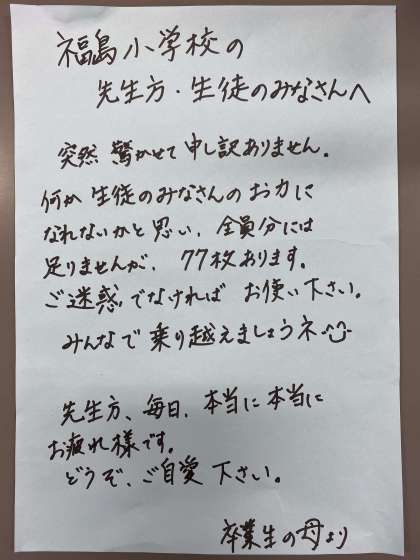 福島小学校の
先生方・生徒のみなさんへ
突然 驚かせて申し訳ありません。
何か 生徒のみなさんの お力に
なれないかと思い、全員分には
足りませんが、77枚あります。
ご迷惑でなければ お使い下さい。
みんなで乗り越えましょうネ
先生方、毎日、本当に本当に
お疲れ様です。
どうぞ、ご自愛 下さい。
卒業生の母より